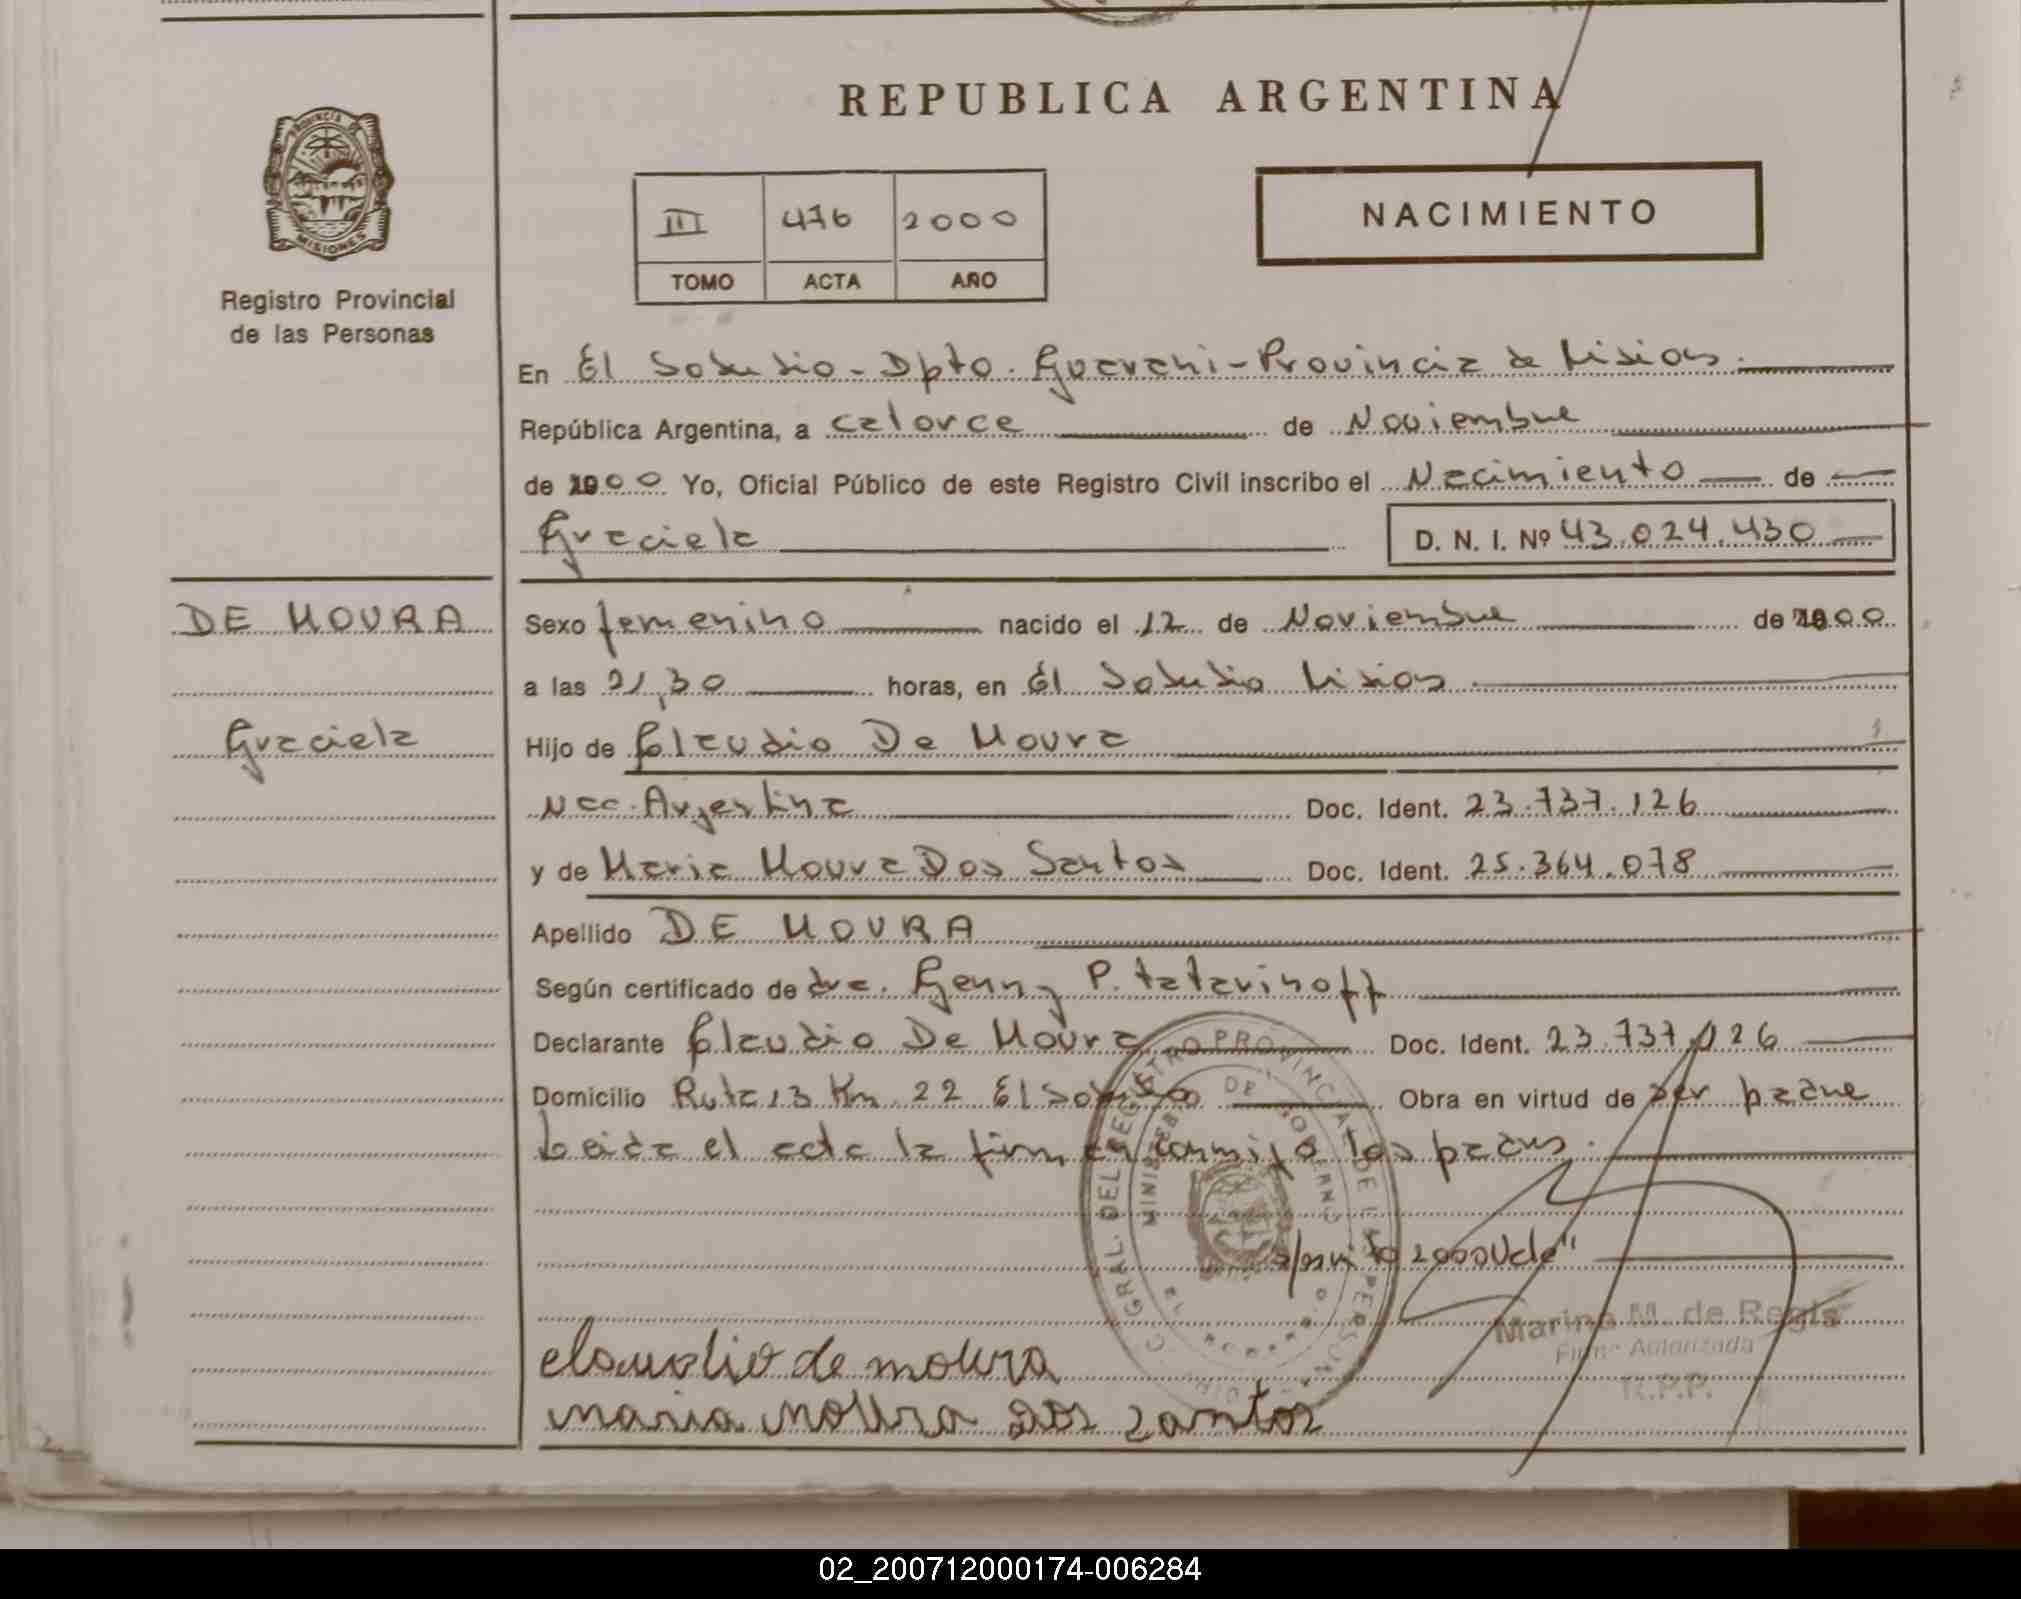 REPUBLICA ARGENTINA
PROVINCIA DE
MISIONES
Registro Provincial
de las Personas
III 476 2000
TOMO ACTA AÑO
NACIMIENTO
En El Soberbio - Dpto. Guarani - Provincia de Misiones.
República Argentina, a catorce de Noviembre
de 2000 Yo, Oficial Público de este Registro Civil inscribo el Nacimiento de
Graciela D. N. I. Nº 43.024.430
DE MOURA
Graciela
Sexo femenino nacido el 12 de Noviembre de 2000
a las 21,30 horas, en El Soberbio Misiones
Hijo de Claudio De Moura
Nac. Argentina Doc. Ident. 23.737.126
y de Maria Moura Dos Santos Doc. Ident. 25.364.078
Apellido DE MOURA
Según certificado de dra. Genny P. Tatarinoff
Declarante Claudio De Moura Doc. Ident. 23.737.126
Domicilio Ruta 13 Km 22 El Soberbio Obra en virtud de ser padre
Leida el acta la firman conmigo los padres.
2000 Vale"
Marina M. de Regis
Firma Autorizada
R.P.P.
claudio de moura
maria moura dos santos
02_200712000174-006284